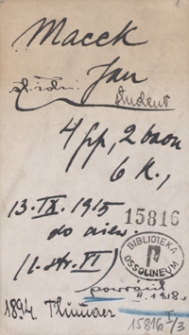 Macek
Jan
student
4 pp, 2 baon
6 K.,
13.IX.1915
15816
do niew.
(l. str. VI)
BIBLIOTEKA
OSSOLINEUM
powrócił
II.1918.
1894.
15816 I/2